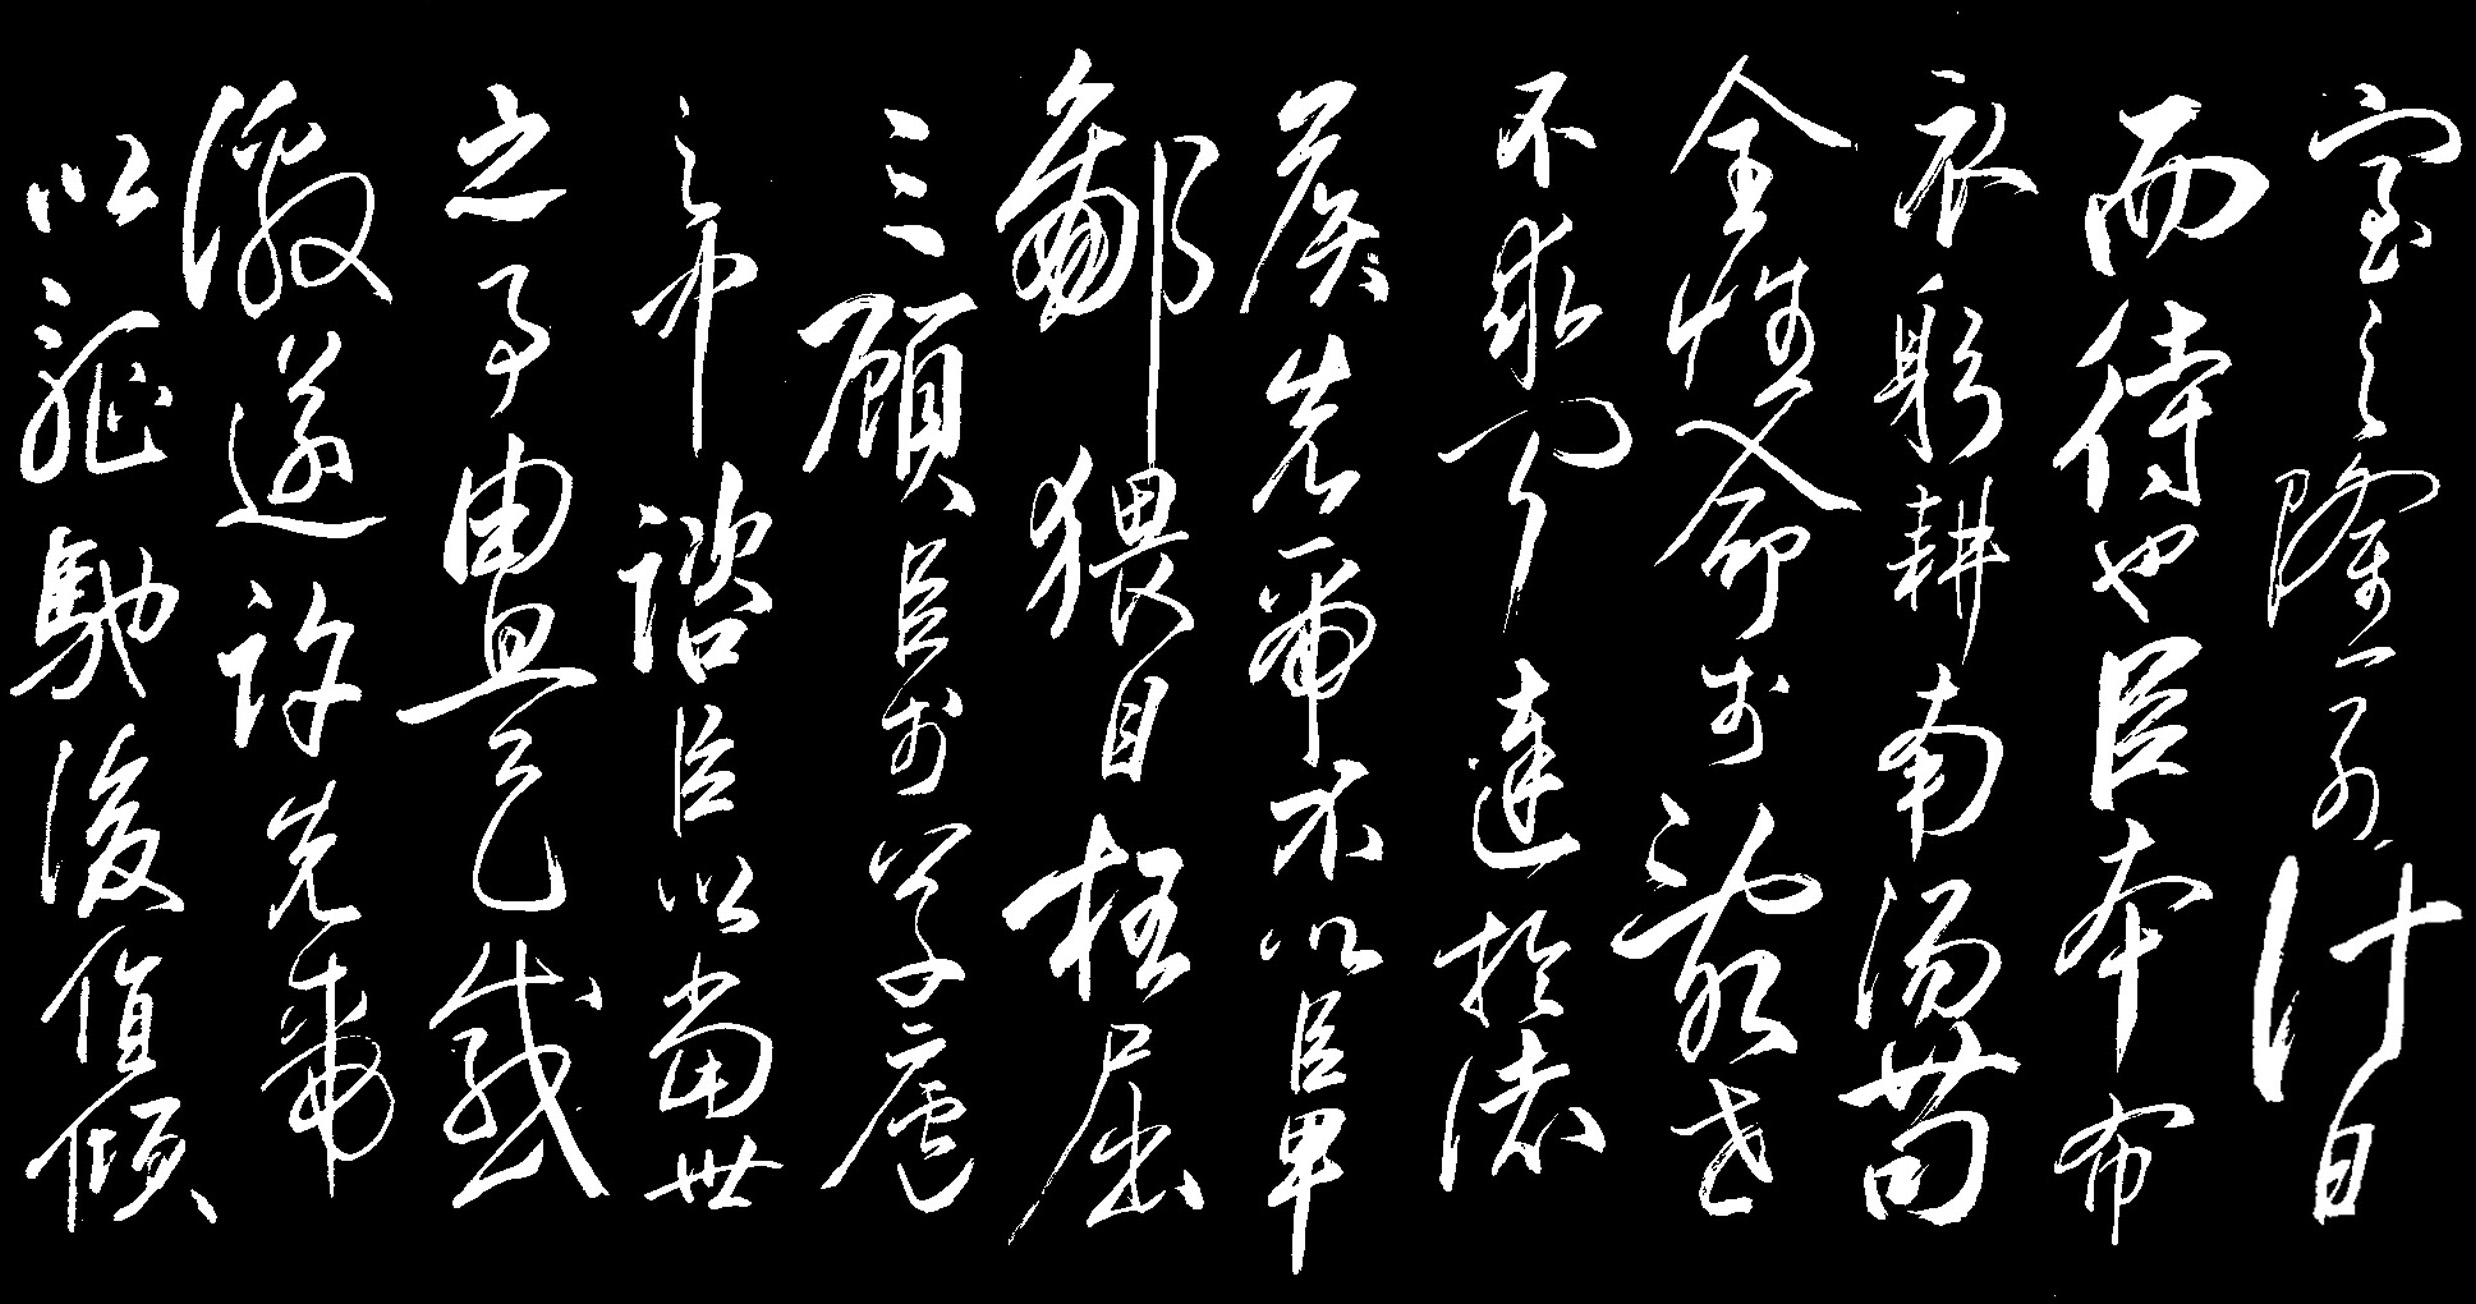 室之隆可計日
而待也臣本布
衣躬耕南陽苟
全性命於亂世
不求聞達於諸
侯先帝不以臣卑
鄙猥自枉屈
三顧臣於草廬
之中諮臣以當世
之事由是感
激遂許先帝
以驅馳後值傾